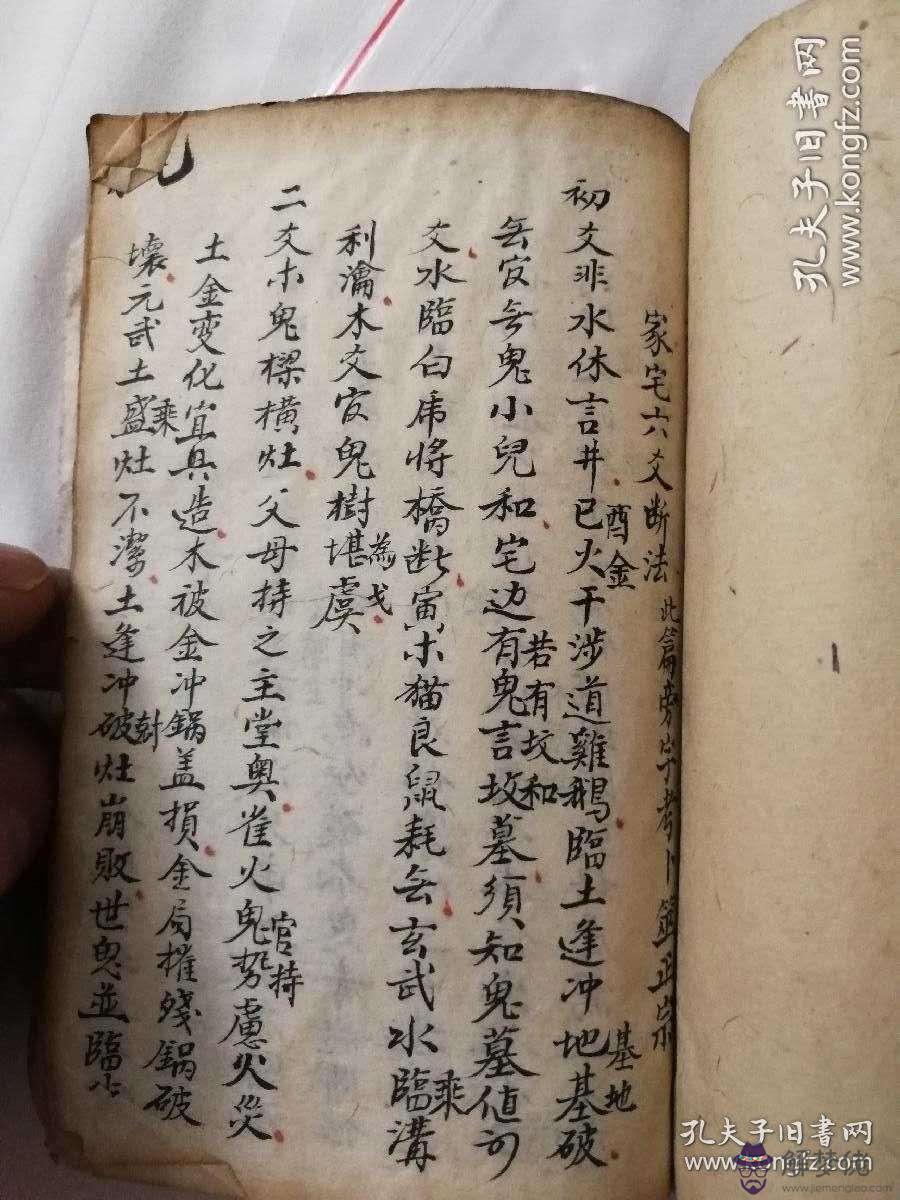 家宅六爻断法 此篇旁字考卜筮正宗
初爻非水休言井巳火干涉道雞鵝臨土逢冲地基破
酉金
基地
無官無鬼小兒和宅边有鬼言坟墓須知鬼墓值可
若有坟和
爻水臨白虎将橋断寅木猫良鼠耗無玄武水臨溝
乘
利瀹木爻官鬼樹堪虞
為戈
二爻木鬼樑橫灶父母持之主堂奥雀火鬼势慮火災
官持
土金变化宜其造木被金冲鍋盖損金局摧殘鍋破
壞元武土盛灶不潔土逢冲破灶崩敗世鬼並臨
乘
孔夫子旧书网
www.kongfz.com
孔夫子旧书网
www.kongfz.com
解梦佬
www.jiemengleo.com